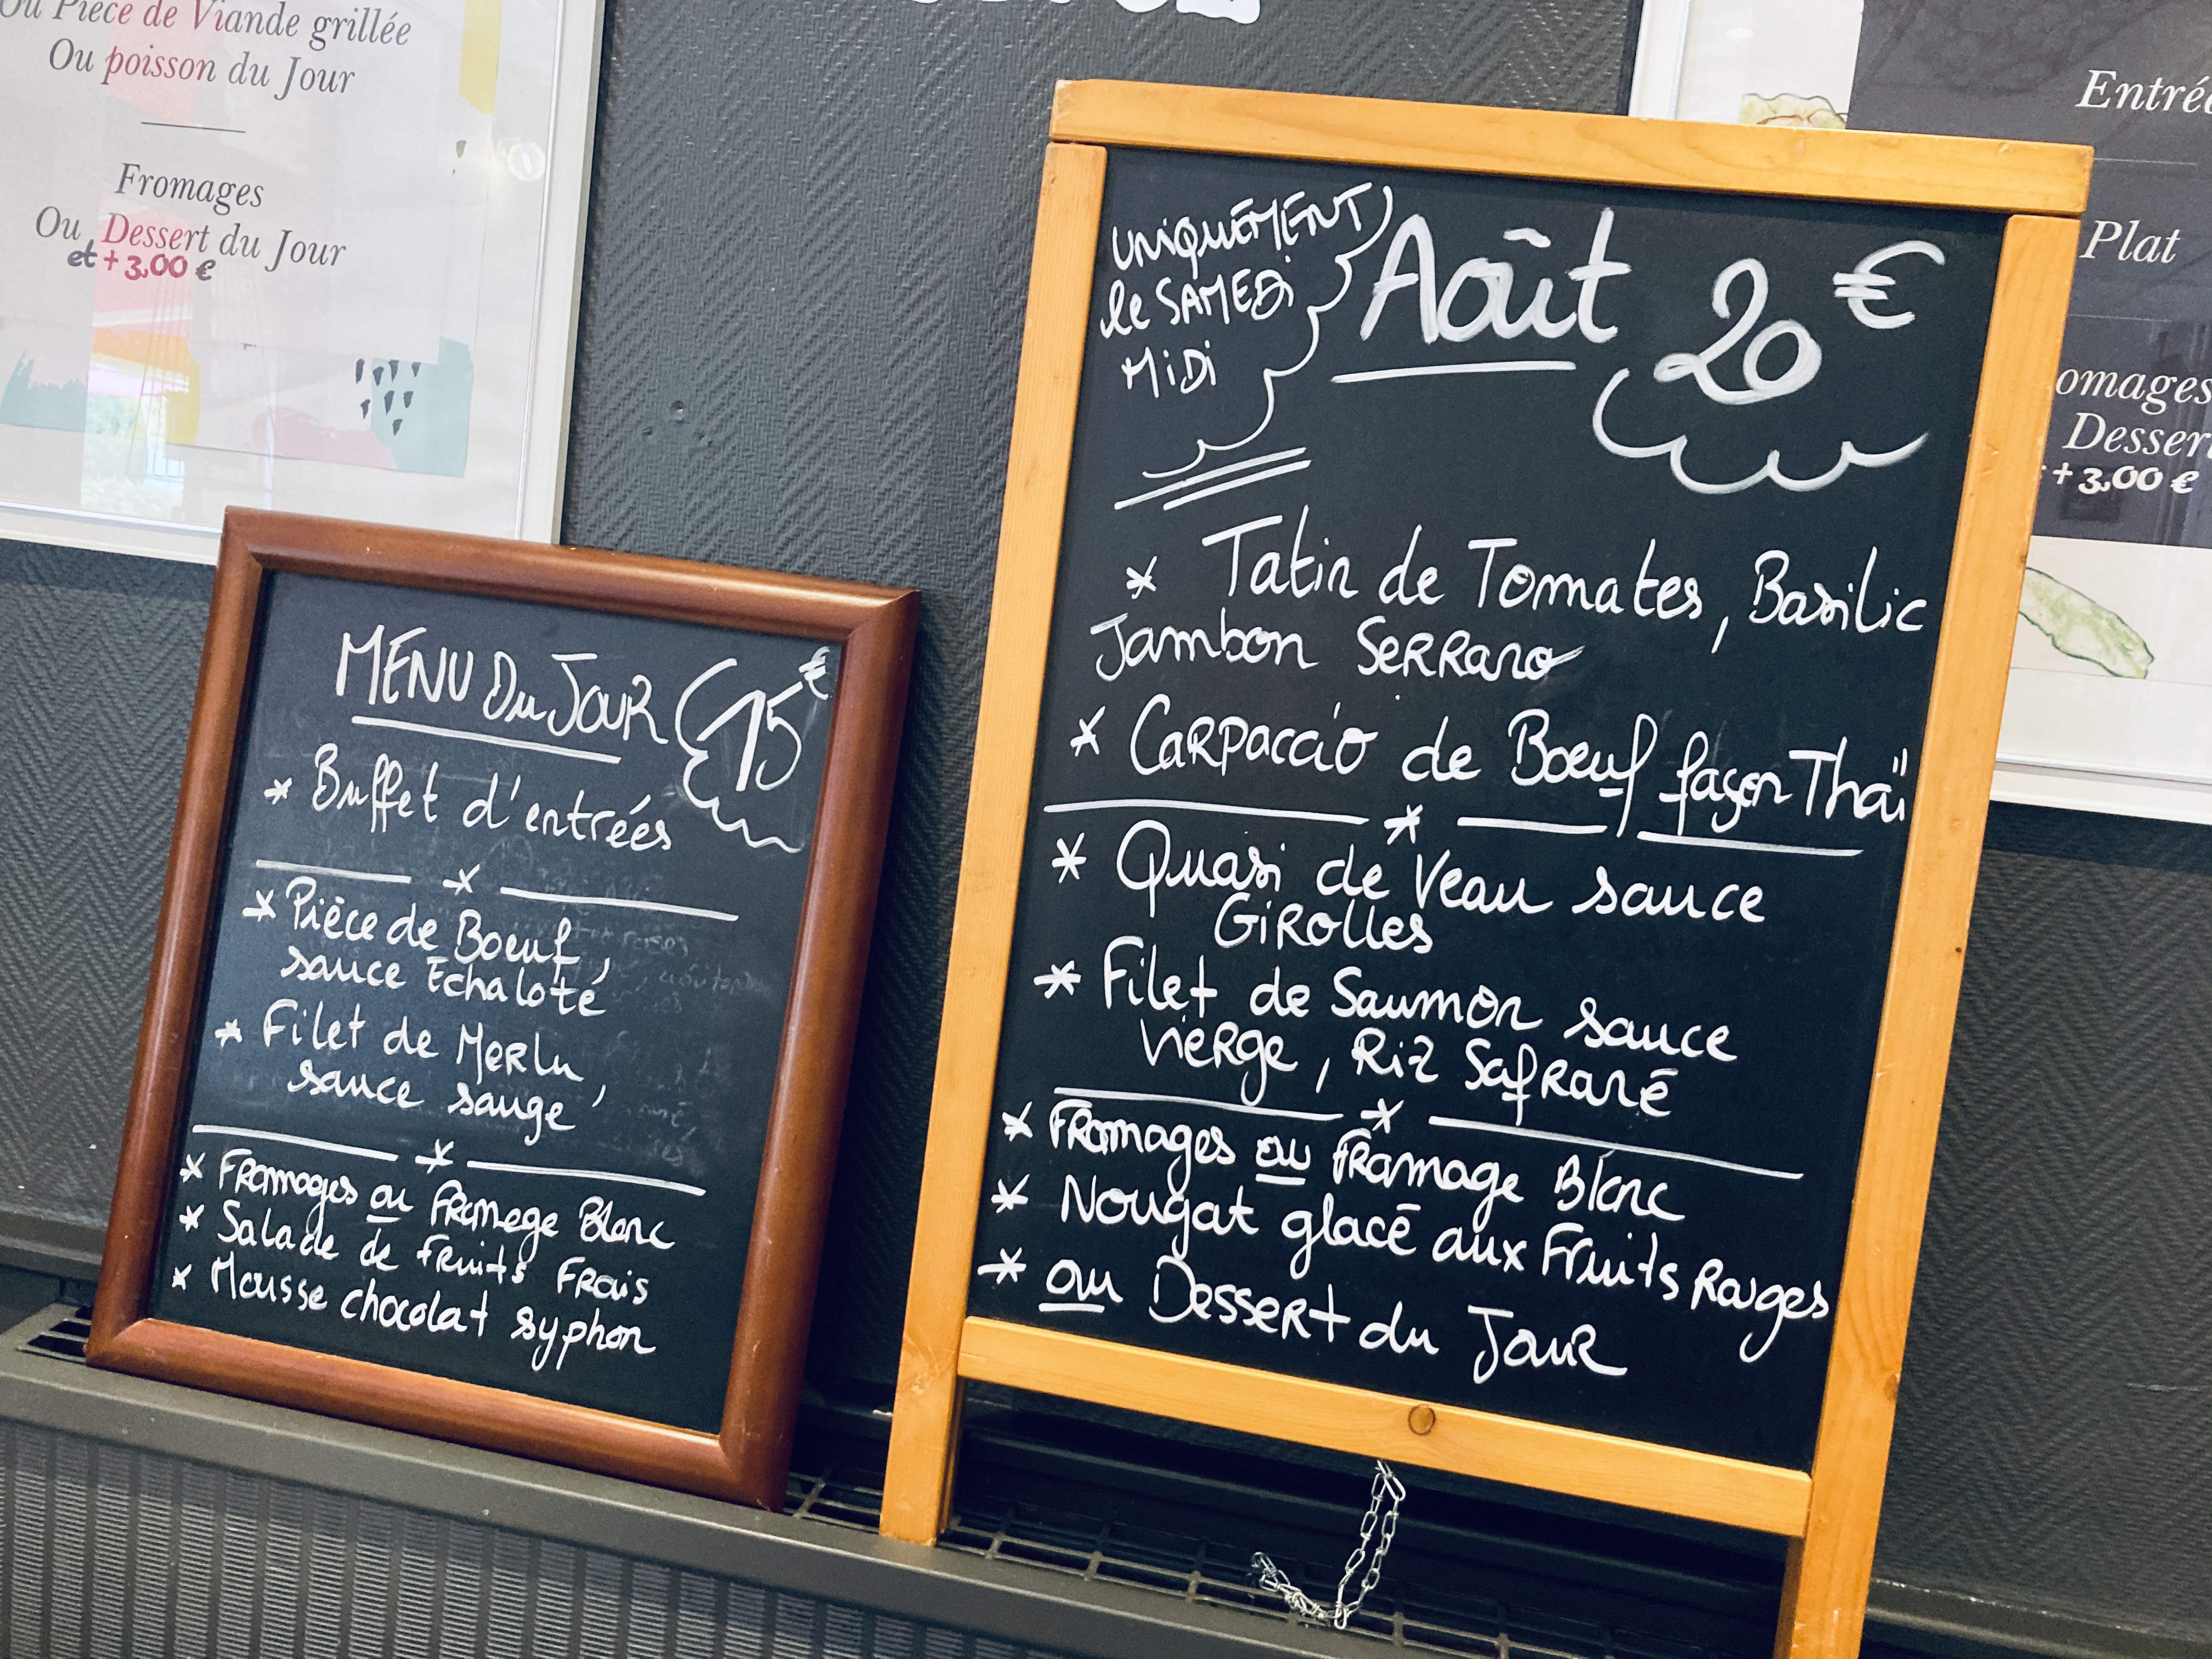 Ou Pièce de Viande grillée
Ou poisson du Jour
Fromages
Ou Dessert du Jour
et + 3,00 €
MENU Du JOUR 15€
* Buffet d'entrées
*
* Pièce de Boeuf,
sauce Echaloté
* Filet de Merlu,
sauce sauge
*
* Fromages ou Fromage Blanc
* Salade de Fruits Frais
* Mousse chocolat syphon
UNIQUEMENT
le SAMEDI
MIDI
Août 20€
* Tatin de Tomates, Basilic
Jambon Serrano
* Carpaccio de Boeuf façon Thaï
*
* Quasi de Veau sauce
Girolles
* Filet de Saumon sauce
Vierge, Riz Safrané
*
* Fromages ou Fromage Blanc
* Nougat glacé aux Fruits Rouges
* ou Dessert du Jour
Entrée
Plat
omages
Desser
+ 3,00 €